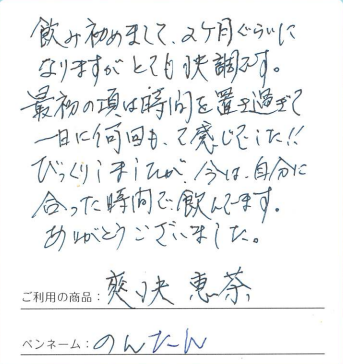 飲み初めまして、2ケ月ぐらいに
なりますがとても快調です。
最初の項は時間を置き過ぎて
一日に何回も、て感じでした!!
びっくりしましたが、今は、自分に
合った時間で飲んでます。
ありがとうございました。
ご利用の商品：爽快恵茶
ペンネーム：のんたーん